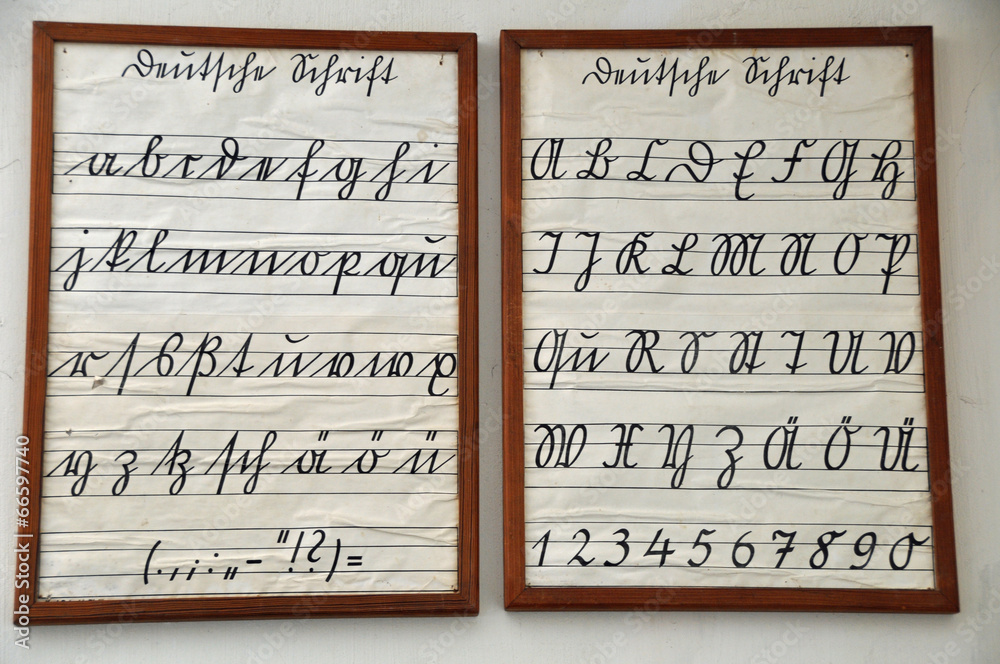 Deutsche Schrift
a b c d e f g h i
j k l m n o p qu
r ſ s ß t u v w x
y z tz sch ä ö ü
( . , ; : „ - " ! ? ) =
Deutsche Schrift
A B C D E F G H
I J K L M N O P
Qu R S St T U V
W X Y Z Ä Ö Ü
1 2 3 4 5 6 7 8 9 0
Adobe Stock | #66597740